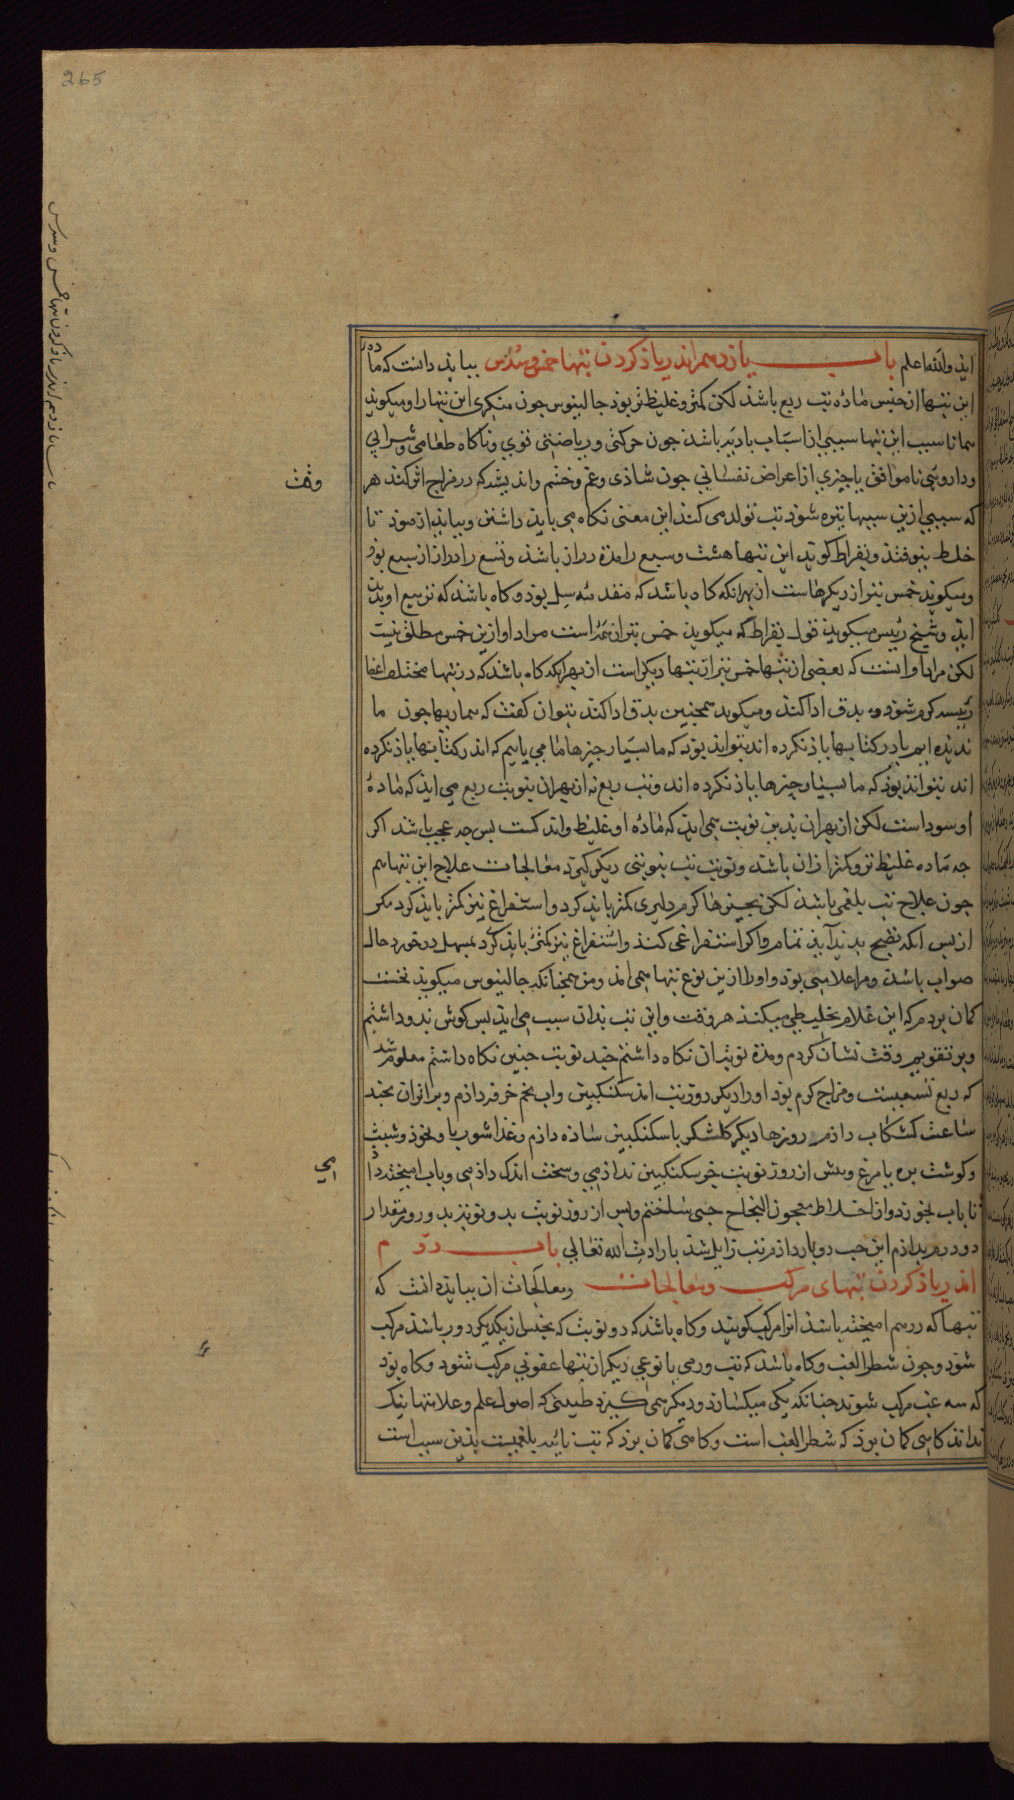 265
ایذ والله اعلم باب یازدهم اندر یاذ کردن تبها خمس وسدس ببایذ دانست که ماده
این تبها از جنس ماده تب ربع باشذ لکن کمتر و غلیظتر بوذ جالینوس جون منکری این تبها را و میکویذ
همانا سبب این تبها سببی از اسباب بادیه باشذ جون حرکتی و ریاضتی قوی و ناکاه طعامی و شرابی
و داروئی ناموافق یا جیزی از اعراض نفسانی جون شاذی و غم و خشم و اندیشه که در مزاج اثر کند هر
وقت
که سببی ازین سببها تیره شوذ تب تولد می کند این معنی نکاه می بایذ داشتن و ببایذ ازموذ تا
خلط بنوفتذ و بقراط کویذ این تبها هشت و سبع را مدة دراز باشذ و تسع را دراز از سبع بوذ
و میکویذ خمس بتر از دیکرهاست از بهر انکه کاه باشد که مقدمه سل بوذ و کاه باشذ که از بس سل بدید
ایذ و شیخ رئیس میکویذ قول بقراط که میکویذ خمس بتر از همه است مراد او ازین خمس مطلق نیست
لکن مراد او انست که بعضی از تبها خمس بتر از تبها دیکر است از بهر انکه کاه باشذ که در تبها مختلف اعضا
رئیسه کرم شوذ و به بدق ادا کند و میکوید همجنین بدق ادا کند بتوان کفت که بیماریها جون ما
ندیده ایم یا در کتابها یاذ نکرده اند بتواند بوذ که ما بسیار جیزها ما می یابیم که اندر کتابها یاذ نکرده
اند بتواند بوذ که ما بسیار جیزها یاذ نکرده اند و تب ربع نه از بهر ان بنوبت ربع می ایذ که مادۀ
او سوداست لکن از بهر ان بذین نوبت همی ایذ که ماده او غلیظ و اندکست بس جه عجب باشد اکر
جه ماده غلیظ تر و کمتر از ان باشد و نوبت تب بنوبتی دیکر کیرد معالجات علاج این تبها هم
جون علاج تب بلغمی باشذ لکن بجیزها کرم دلیری کمتر باید کرد و استفراغ نیز کمتر بایذ کرد مکر
از بس انکه نضج بدیذ آید تمام و اکر استفراغی کنند و استفراغ نیز کمتر بایذ کرد بمسهل در خورد حال
صواب باشذ و مرا غلامی بوذ و اورا ازین نوع تبها همی امذ و من همجنانکه جالینوس میکویذ نخست
کمان بردم که این غلام تخلیطی میکند هر وقت و این تب بذان سبب می ایذ بس کوش بدو داشتم
و بر تقویم وقت نشان کردم و مدة نوبتان نکاه داشتم جند نوبت جنین نکاه داشتم معلوم شد
که ربع تسعیست و مزاج کرم بوذ اورا دیکر روز تب اندر سکنکبین و اب تخم خرفه دادم و بر اثر ان بجند
ساعت کشکاب دادم روزها دیکر کلشکر با سکنکبین ساده داذم و غذا شوربا و نخوذ و شبث
و کوشت بره یا مرغ و بیش از روز نوبت جز سکنکبین نداذمی و سخت اندک داذمی و باب امیخته دا
می
تا باب نخورد و از اخلاط معجون النجاح حبی ساختم و بس از روز نوبت بدو نوبت بد و روز مقدار
دو درم بداذم این حب دو بار داذم تب زایل شذ بارادت الله تعالی باب دوم
اندر یاذ کردن تبهای مرکب و معالجات و معالجات ان ببایذ دانست که
تبها که در هم امیخته باشذ انرا مرکب کویند و کاه باشذ که دو نوبت که بجنس از یکدیکر دور باشذ مرکب
شوذ و جون شطر الغب و کاه باشذ که تب ورمی با نوعی دیکر از تبها عفونی مرکب شوذ و کاه بوذ
که سه غب مرکب شوند جنانکه یکی میکسارد و دیکر همی کیرد طبیبی که اصول علم و علامتها نیک
نداند کاهی کمان بوذ که شطر الغب است و کاهی کمان برذ که تب نائبه بلغمیست بذین سبب است